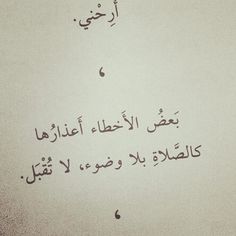 أَرِحْني.
،
بَعضُ الأَخطاء أَعذارُها
كالصَّلاةِ بلا وضوء، لا تُقْبَل.
،